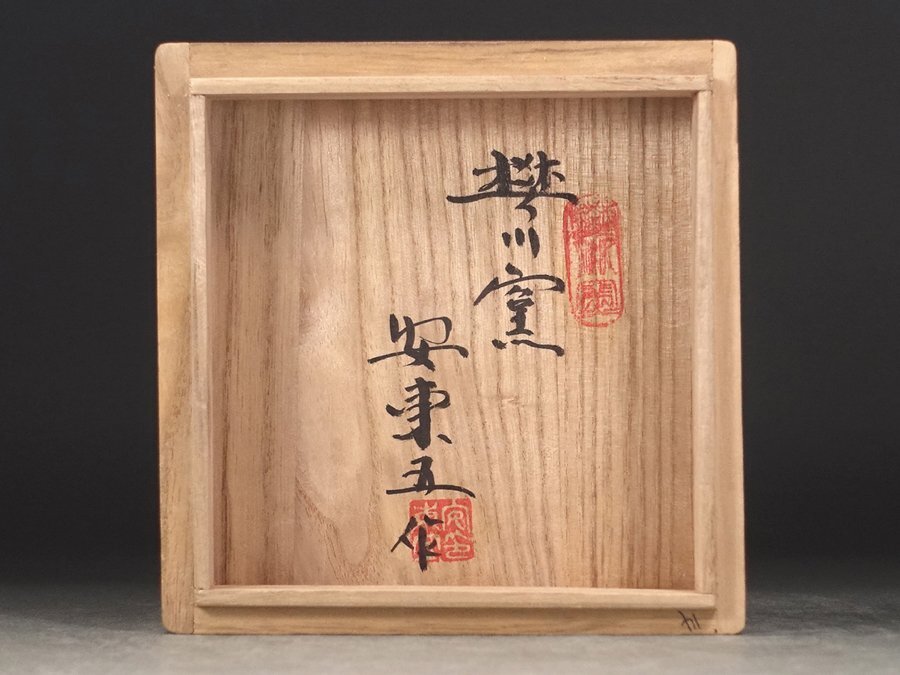 樊川窯
安東五作